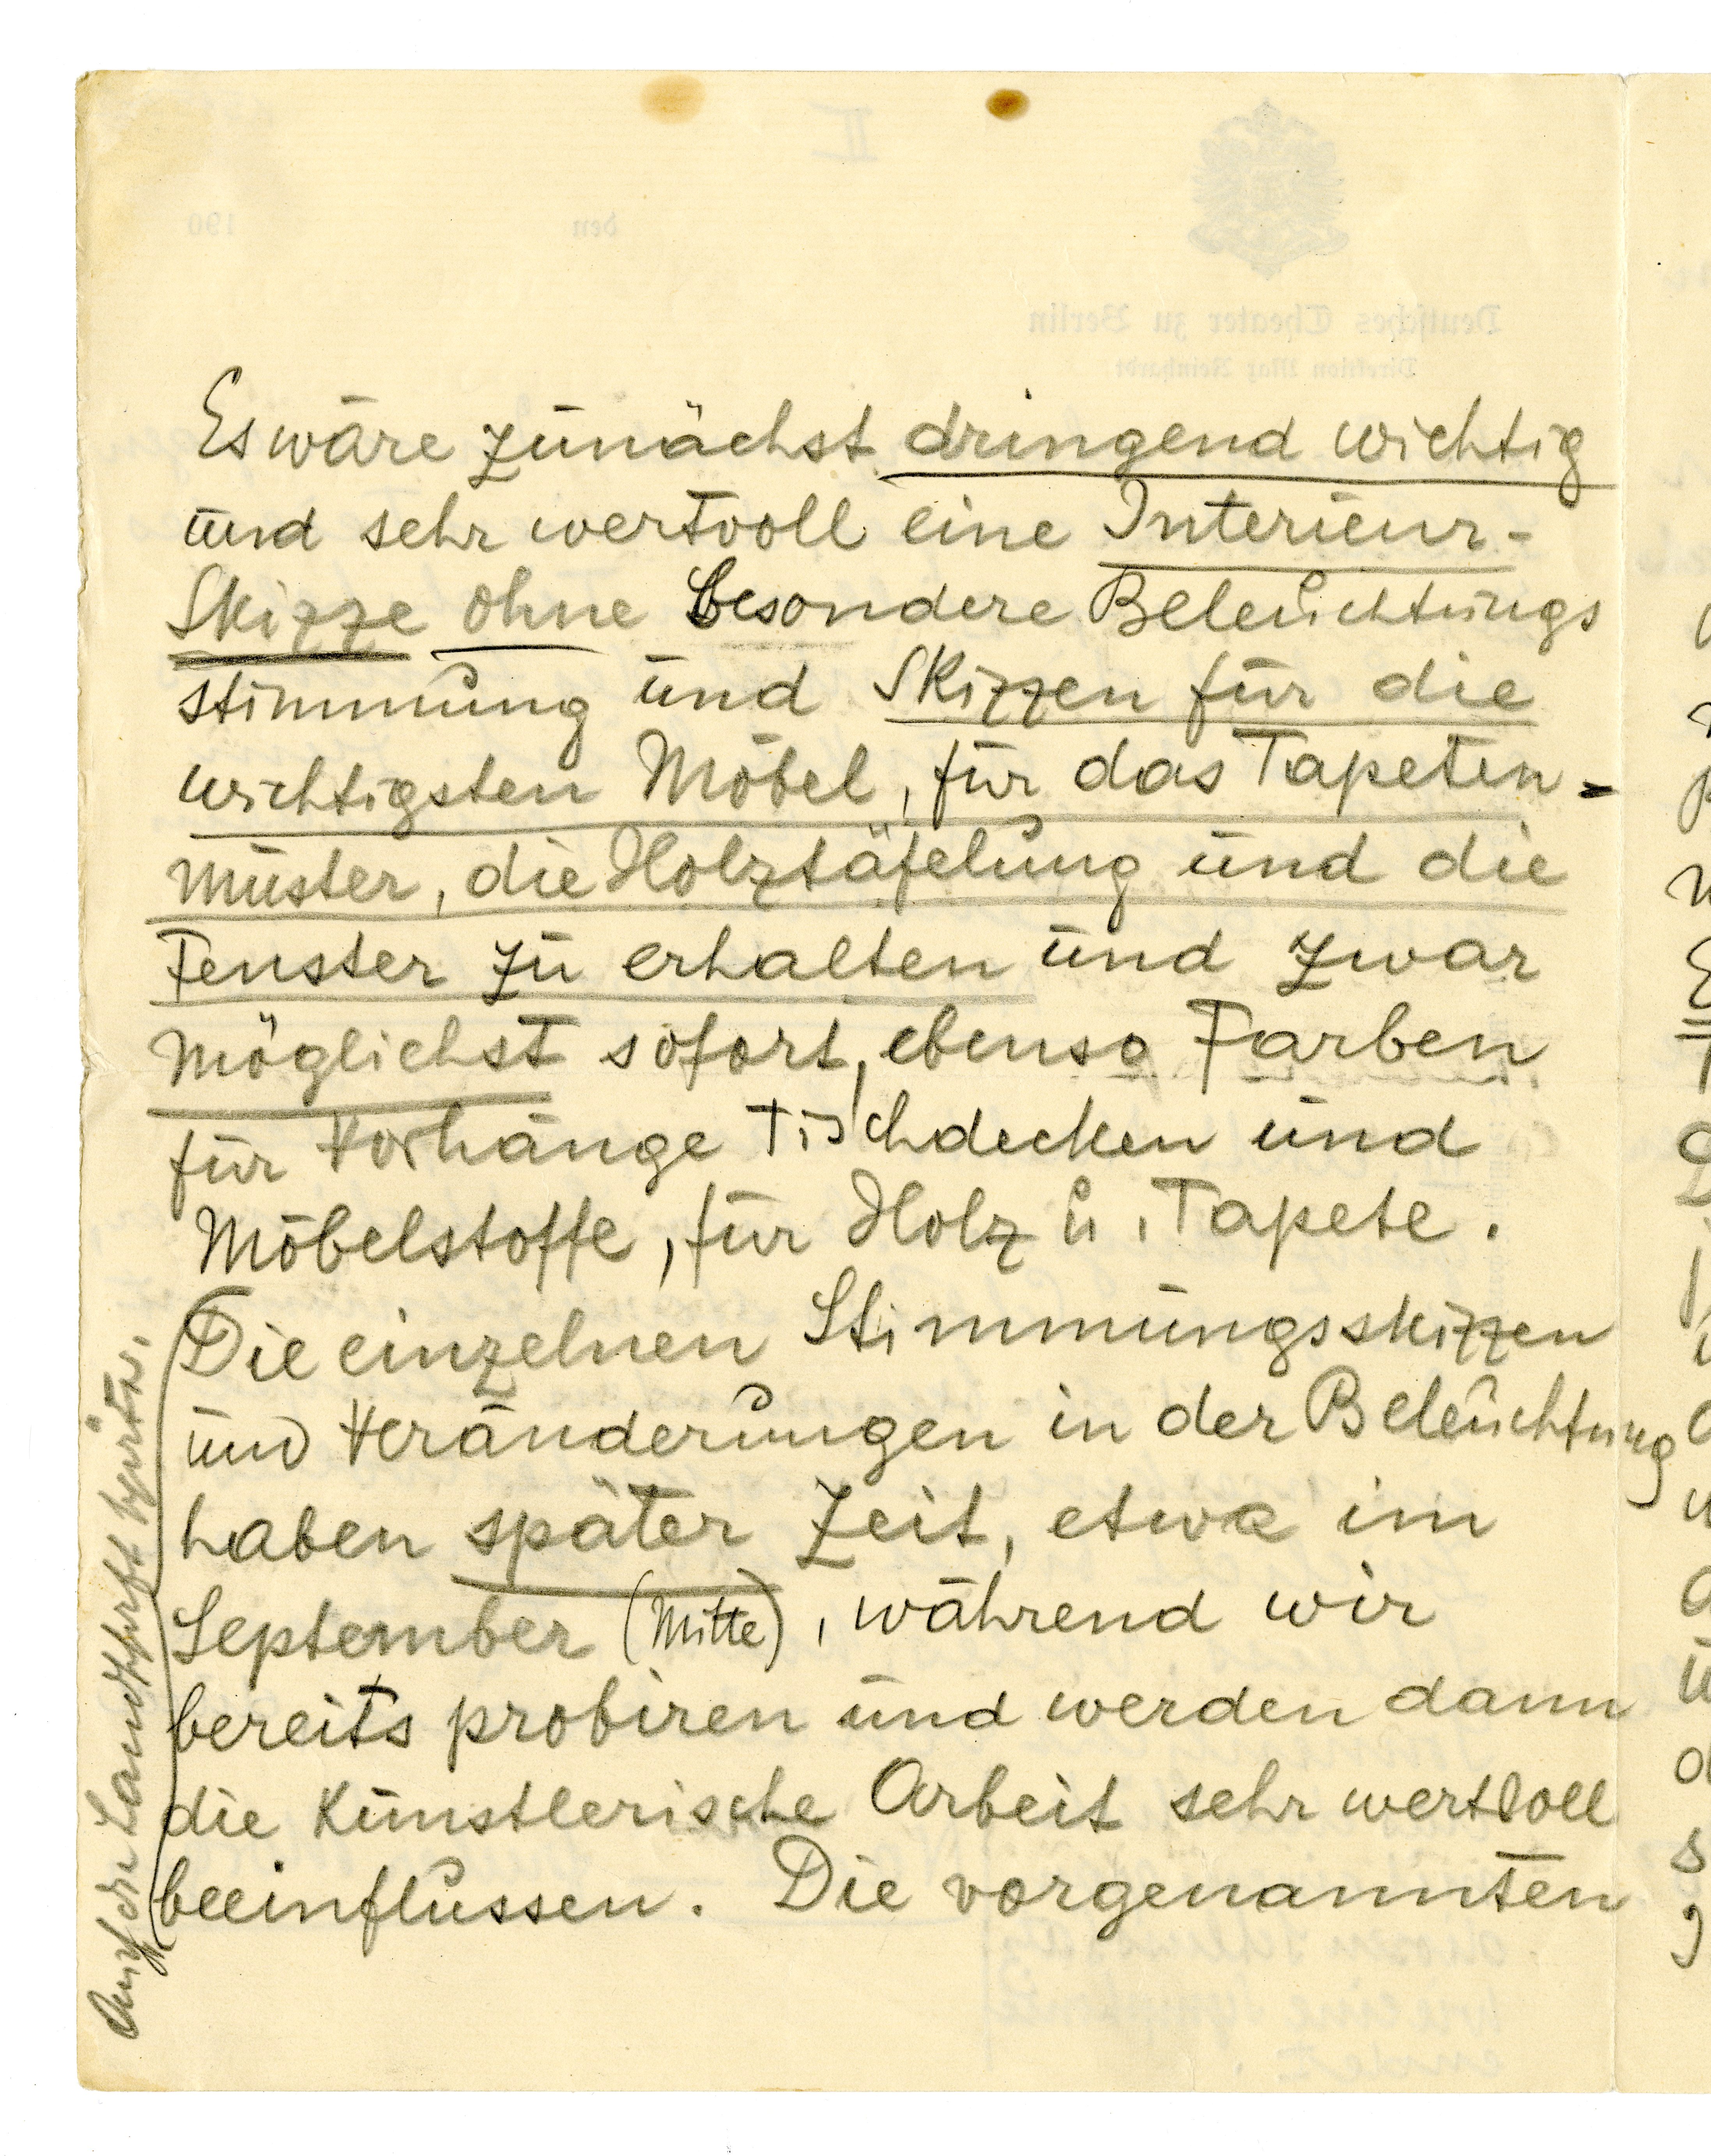 Es wäre zunächst dringend wichtig
und sehr wertvoll eine Interieur-
Skizze ohne besondere Beleuchtungs
stimmung und Skizzen für die
wichtigsten Möbel, für das Tapeten-
muster, die Holztäfelung und die
Fenster zu erhalten und zwar
möglichst sofort, ebenso Farben
für Vorhänge Tischdecken und
Möbelstoffe, für Holz u. Tapete.
Die einzelnen Stimmungsskizzen
und Veränderungen in der Beleuchtung
haben später Zeit, etwa im
September (Mitte), während wir
bereits probiren und werden dann
die künstlerische Arbeit sehr wertvoll
beeinflussen. Die vorgenannten
Auch die Landschaft später.
II
den 190
Deutsches Theater zu Berlin
Direktion Max Reinhardt